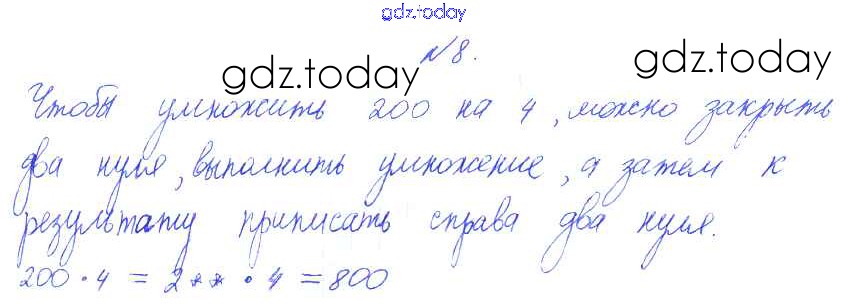 gdz.today
№8.
gdz.today gdz.today
Чтобы умножить 200 на 4, можно закрыть
два нуля, выполнить умножение, а затем к
результату приписать справа два нуля.
200 · 4 = 2** · 4 = 800